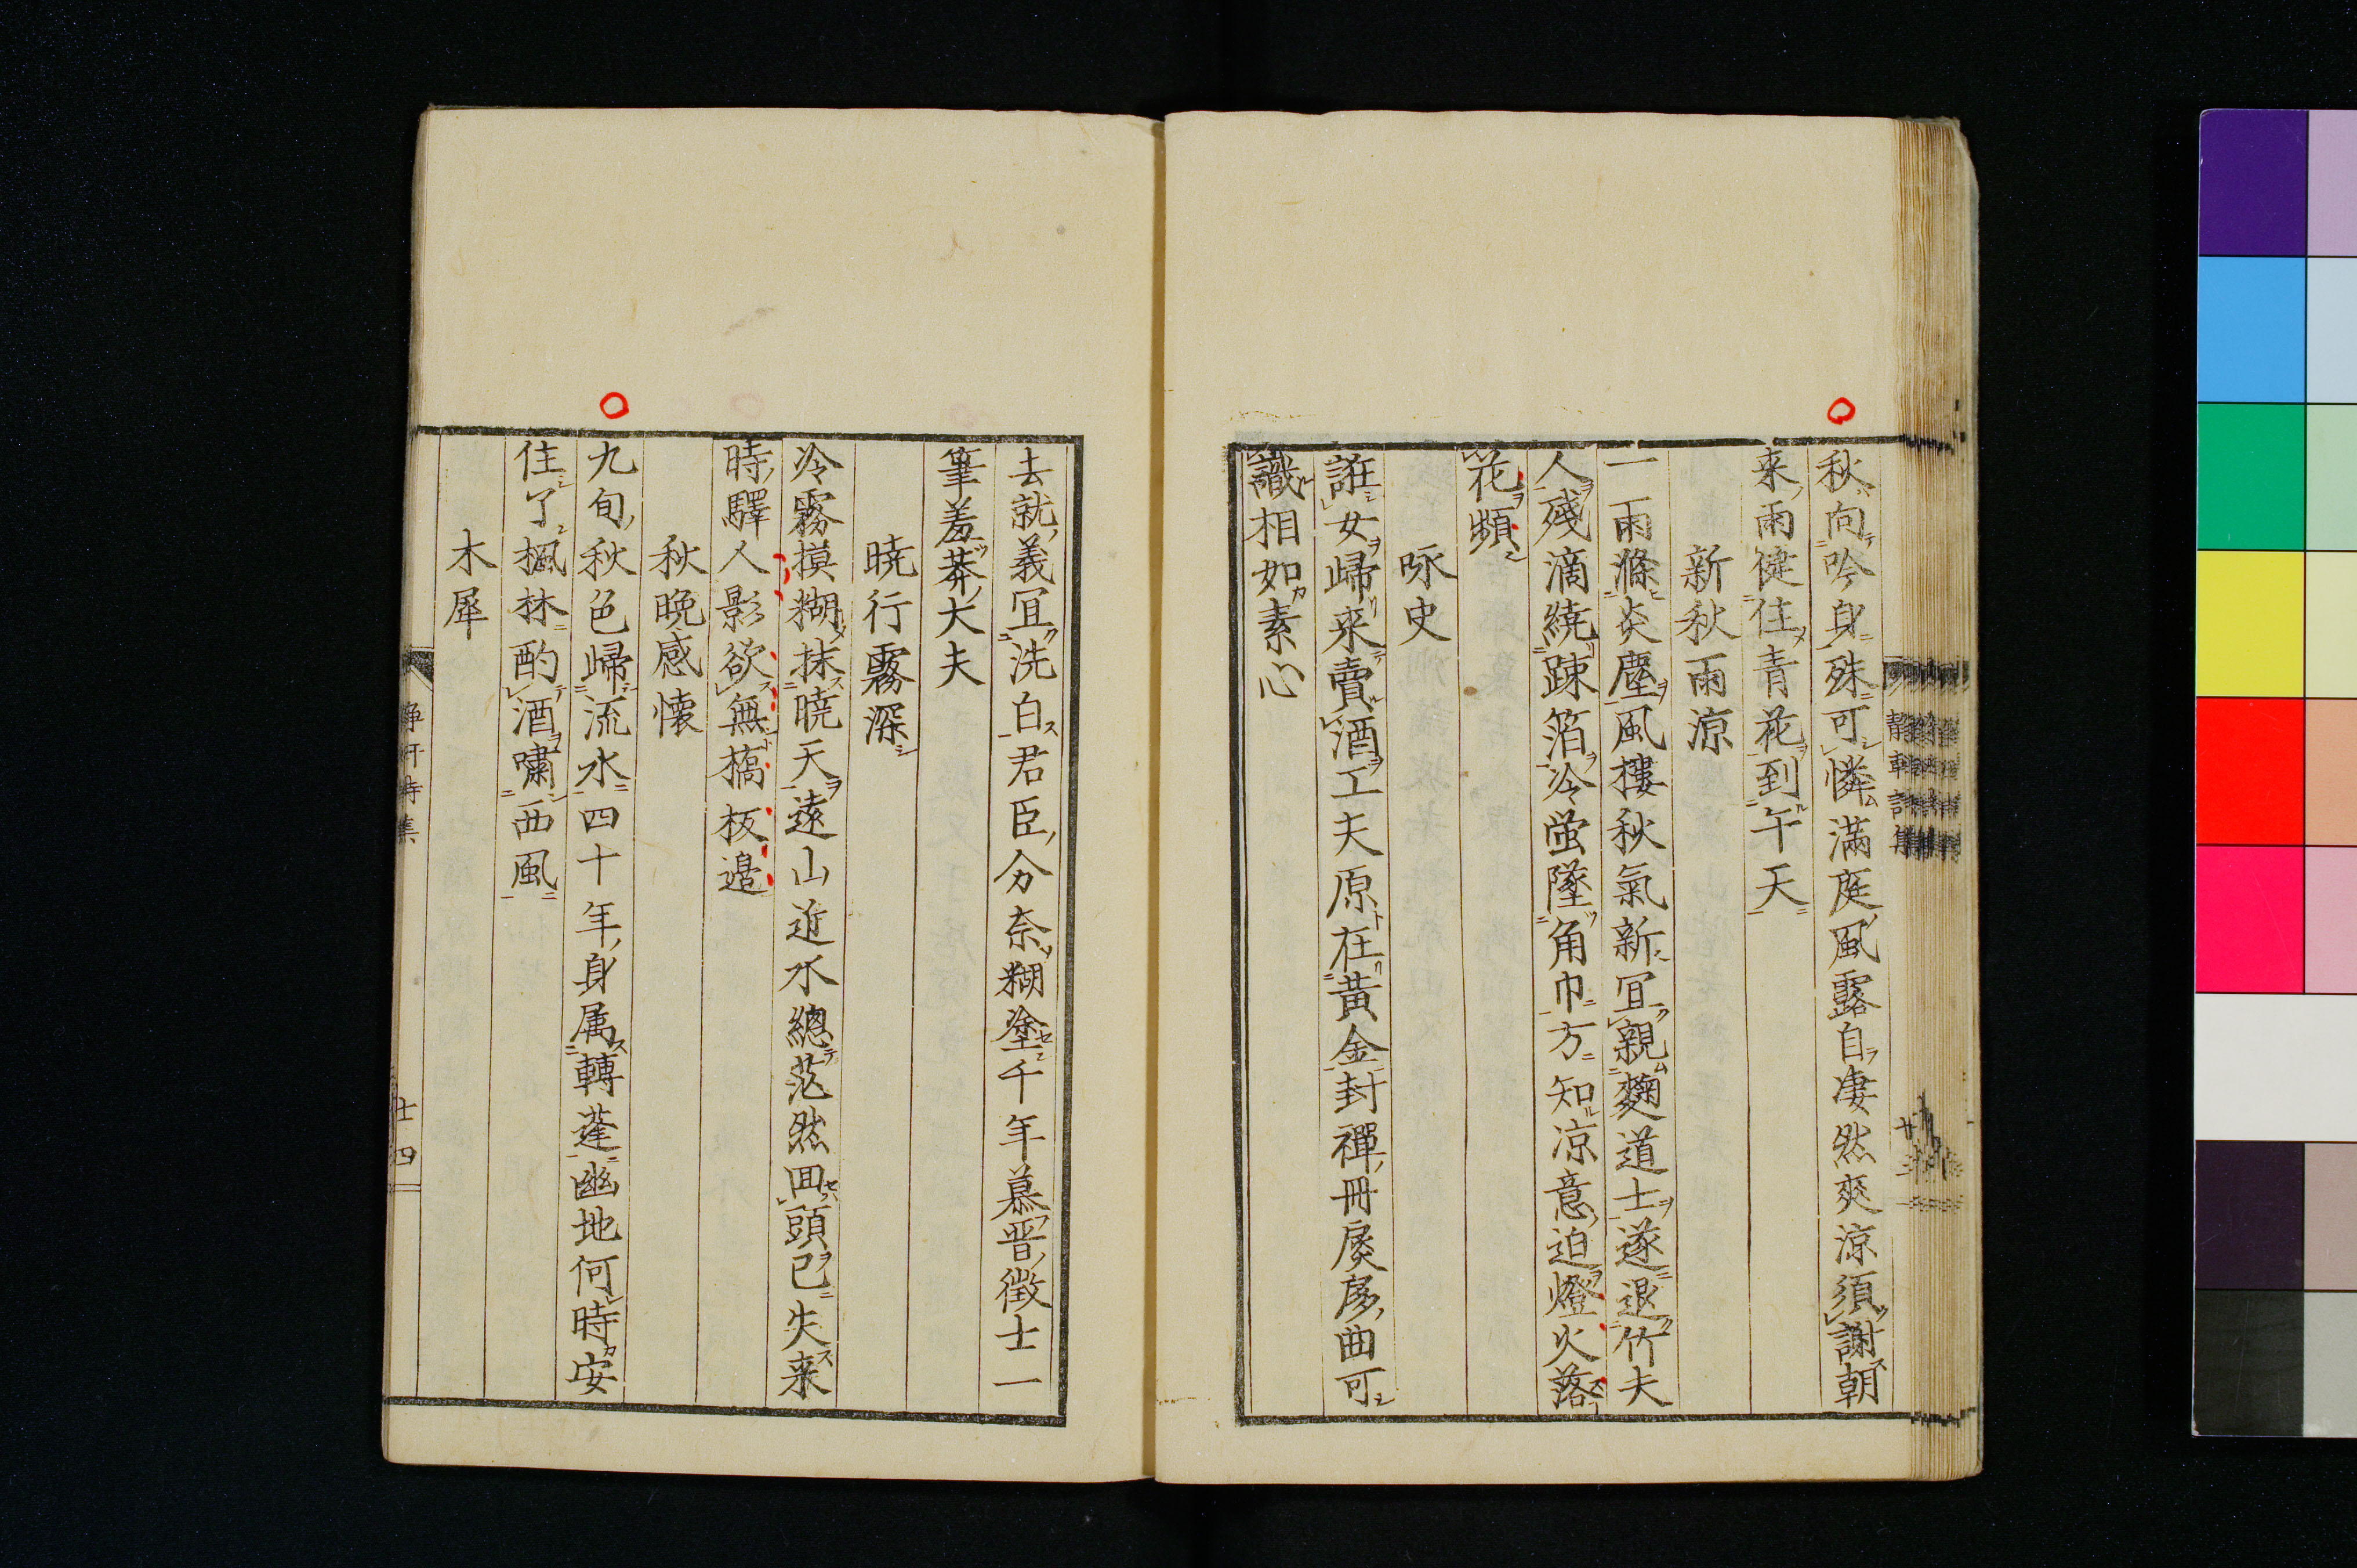 秋向吟身殊可憐滿庭風露自凄然爽涼須謝朝
来雨健住青花到午天
新秋雨涼
一雨滌炎塵風樓秋氣新冝親麴道士遂退竹夫
人殘滴繞踈箔冷蛍墜角巾方知涼意迫燈火落
花頻
咏史
誑女歸来賣酒工夫原在黃金封禪冊房曲可
識相如素心
去就義冝洗白君臣分奈糊塗千年慕晋徴士一
筆羞莽大夫
暁行霧深
冷霧摸糊抹暁天遠山近水總茫然回頭已失来
時驛人影欲無橋板邉
秋晩感懐
九旬秋色歸流水四十年身属轉蓬幽地何時安
住了楓林酌酒嘯西風
木犀
静軒詩集
廿四